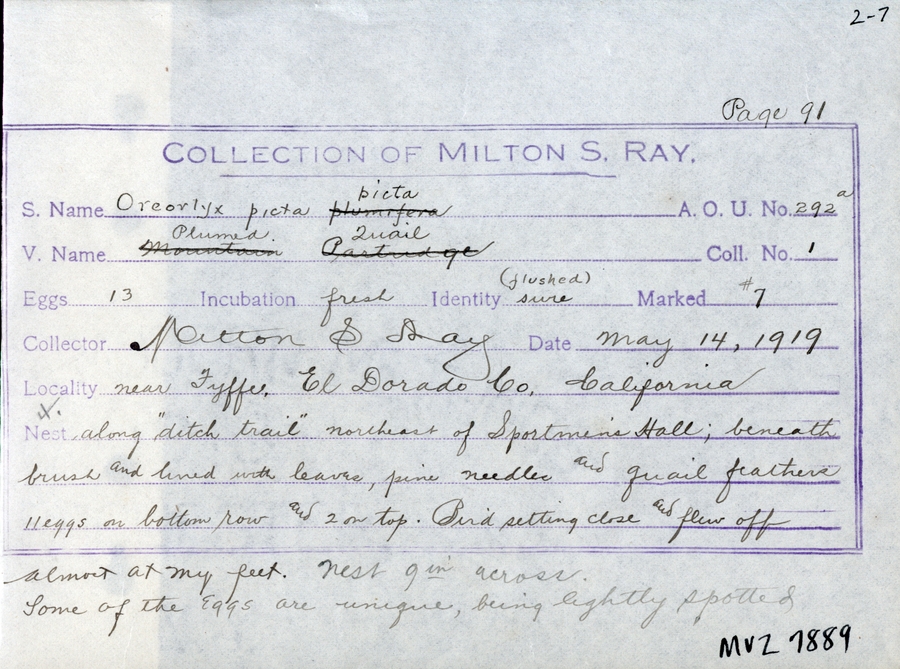 2-7
Page 91
COLLECTION OF MILTON S. RAY.
picta
S. Name Oreortyx picta plumifera A. O. U. No. 292a
Plumed Quail
V. Name Mountain Partridge Coll. No. 1
(flushed)
Eggs 13 Incubation fresh Identity sure Marked #7
Collector Milton S Ray Date May 14, 1919
Locality near Fyffe, El Dorado Co, California
Nest along "ditch trail" northeast of Sportmen's Hall; beneath
brush and lined with leaves, pine needles and quail feathers
11 eggs on bottom row and 2 on top. Bird setting close and flew off
almost at my feet. Nest 9 in across.
Some of the eggs are unique, being lightly spotted
MVZ 7889